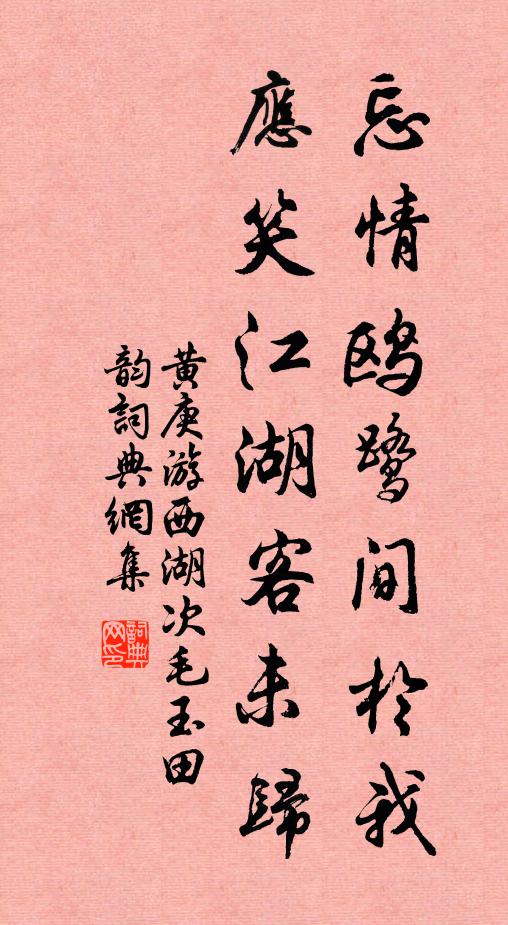 忘情鸥鹭间於我
應笑江湖客未歸
黄庚游西湖次毛玉田
韵詞典網集
詞典网印